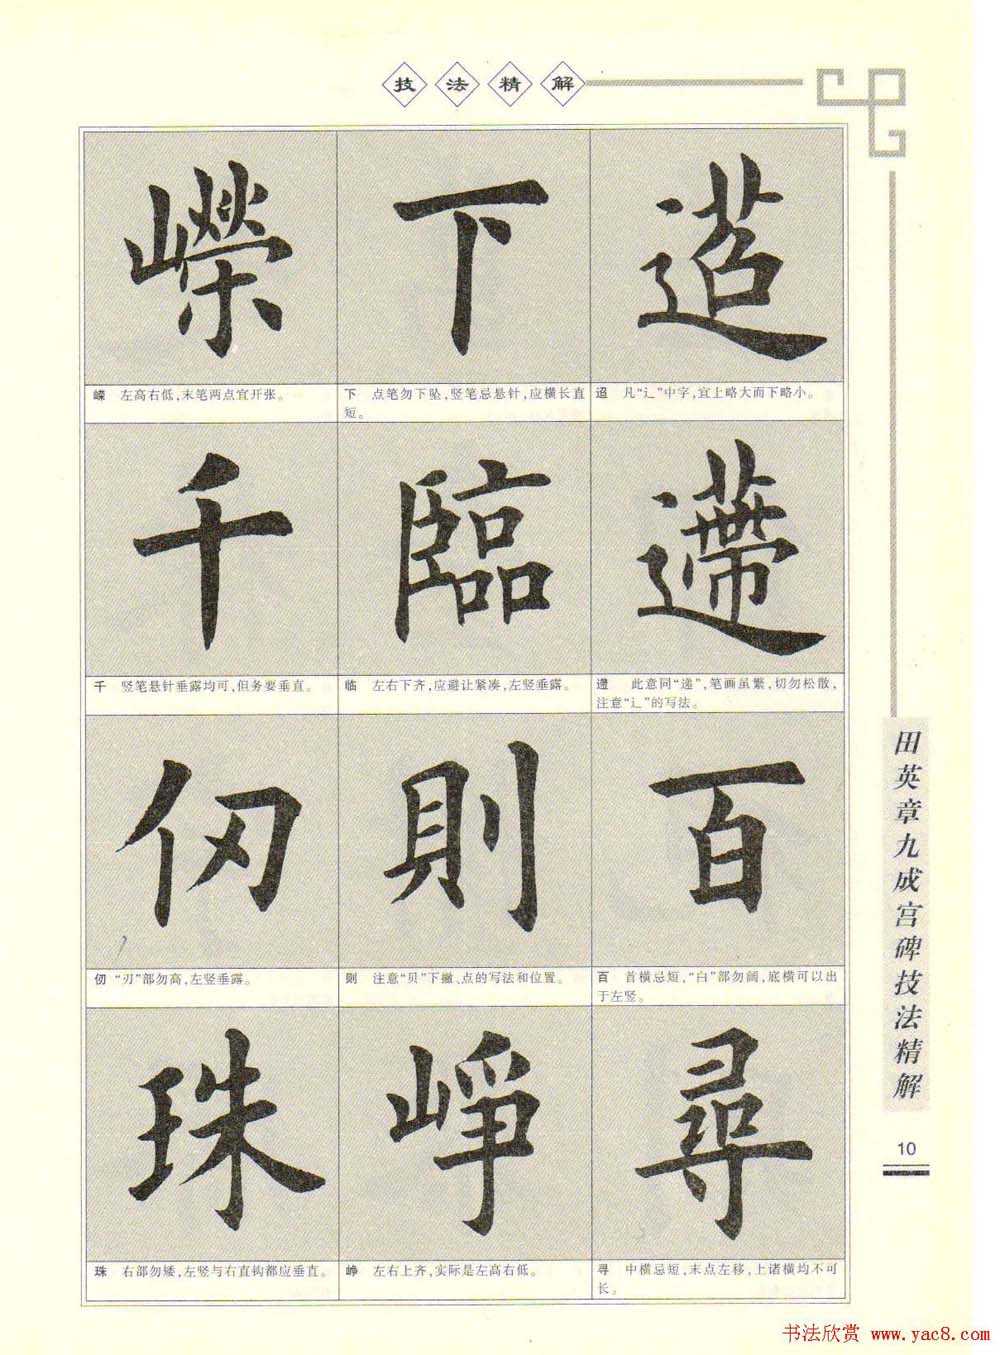 技法精解
嶸
下
迢
嵘 左高右低,末笔两点宜开张。
下 点笔勿下坠,竖笔忌悬针,应横长直
短。
迢 凡“辶”中字,宜上略大而下略小。
千
臨
千 竖笔悬针垂露均可,但务要垂直。
临 左右下齐,应避让紧凑,左竖垂露。
此意同“递”,笔画虽繁,切勿松散,
注意“辶”的写法。
仞
則
百
仞 “刃”部勿高,左竖垂露。
则 注意“贝”下撇、点的写法和位置。
百 首横忌短,“白”部勿阔,底横可以出
于左竖。
珠
崢
尋
珠 右部勿矮,左竖与右直钩都应垂直。
峥 左右上齐,实际是左高右低。
寻 中横忌短,末点左移,上诸横均不可
长。
田英章九成宫碑技法精解
10
书法欣赏 www.yac8.com